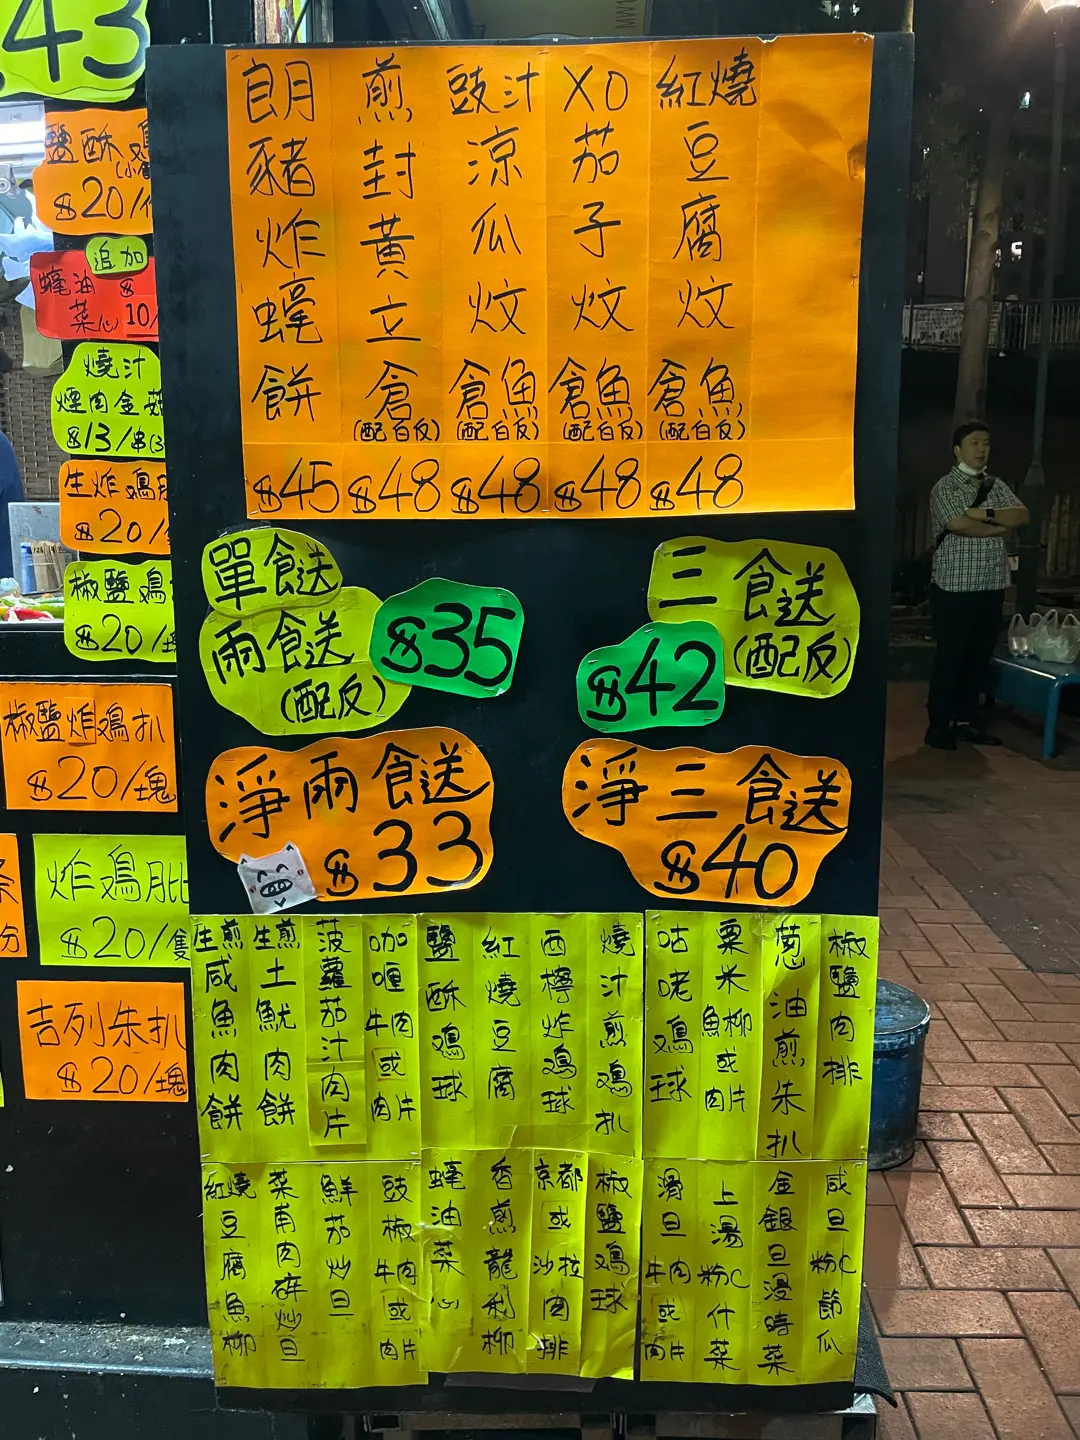 43
鹽酥鷄
(小食
$20/
追加
蠔油 $
菜(心) 10/
燒汁
煙肉金菇
$13/串(3
生炸鷄
$20/
椒鹽鷄
$20/塊
椒鹽炸鷄扒
$20/塊
炸鷄肶
$20/隻
分
吉列朱扒
$20/塊
朗豬炸蠔餅
$45
煎封黃立倉
(配白反)
$48
豉汁涼瓜炆倉魚
(配白反)
$48
XO茄子炆倉魚
(配白反)
$48
紅燒豆腐炆倉魚
(配白反)
$48
單餸
両餸
(配反)
$35
三餸
(配反)
$42
淨両餸
$33
淨三餸
$40
生煎咸魚肉餅
生煎土魷肉餅
菠蘿茄汁肉片
咖喱牛肉或肉片
鹽酥鷄球
紅燒豆腐
西檸炸鷄球
燒汁煎鷄扒
咕咾鷄球
粟米魚柳或肉片
葱油煎朱扒
椒鹽肉排
紅燒豆腐魚柳
菜甫肉碎炒旦
鮮茄炒旦
豉椒牛肉或肉片
蠔油菜心
香煎龍利柳
京都或沙拉肉排
椒鹽鷄球
滑旦牛肉或肉片
上湯粉C什菜
金銀旦浸時菜
咸旦粉C節瓜